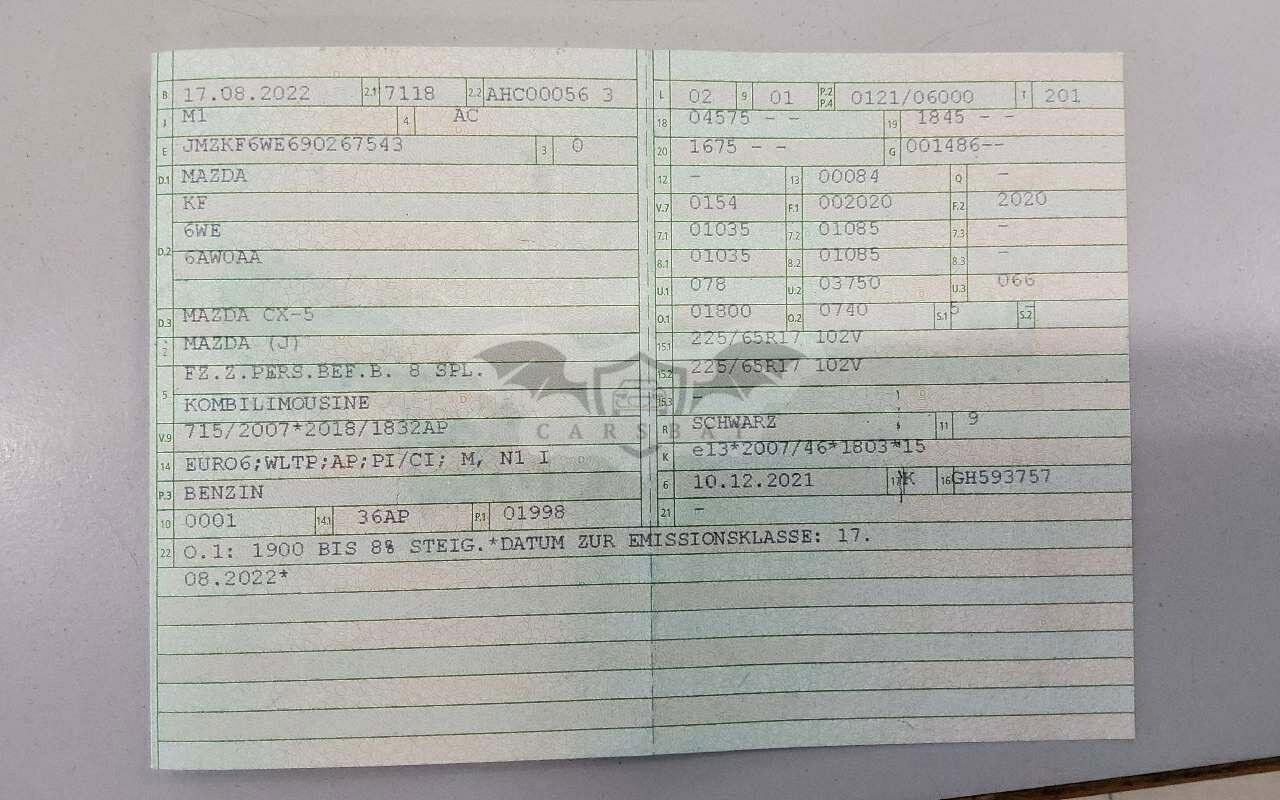 B 17.08.2022 2.1 7118 2.2 AHC00056 3
J M1 4 AC
E JMZKF6WE690267543 3 0
D.1 MAZDA
KF
D.2 6WE
6AW0AA
D.3 MAZDA CX-5
2 MAZDA (J)
FZ.Z.PERS.BEF.B. 8 SPL.
5 KOMBILIMOUSINE
V.9 715/2007*2018/1832AP
14 EURO6;WLTP;AP;PI/CI; M, N1 I
P.3 BENZIN
10 0001 14.1 36AP P.1 01998
L 02 9 01 P.2 P.4 0121/06000 T 201
18 04575 - - 19 1845 - -
20 1675 - - G 001486--
12 - 13 00084 Q -
V.7 0154 F.1 002020 F.2 2020
7.1 01035 7.2 01085 7.3 -
8.1 01035 8.2 01085 8.3 -
U.1 078 U.2 03750 U.3 066
O.1 01800 O.2 0740 S.1 5 S.2 -
15.1 225/65R17 102V
15.2 225/65R17 102V
15.3 -
R SCHWARZ 11 9
K e13*2007/46*1803*15
6 10.12.2021 17 K 16 GH593757
21 -
22 O.1: 1900 BIS 8% STEIG.*DATUM ZUR EMISSIONSKLASSE: 17.
08.2022*
CARSBAT